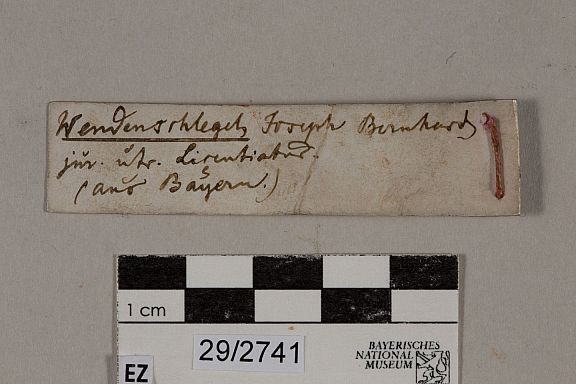 Wendenschlegel, Joseph Bernhard,
jur. utr. Licentiatus.
(aus Bayern.)
1 cm
29/2741
BAYERISCHES
NATIONAL
MUSEUM
EZ